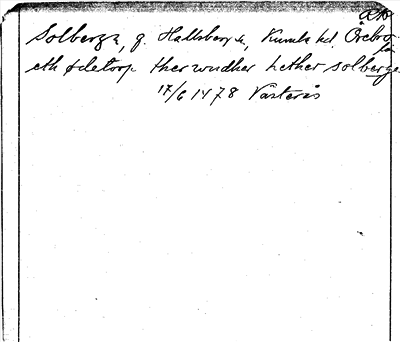 Ak
Solberga, g. Hallsbergs sn, Kumla hd. Örebro
län
eth ødetorp ther wndher hether solberge
17/6 1478 Västerås